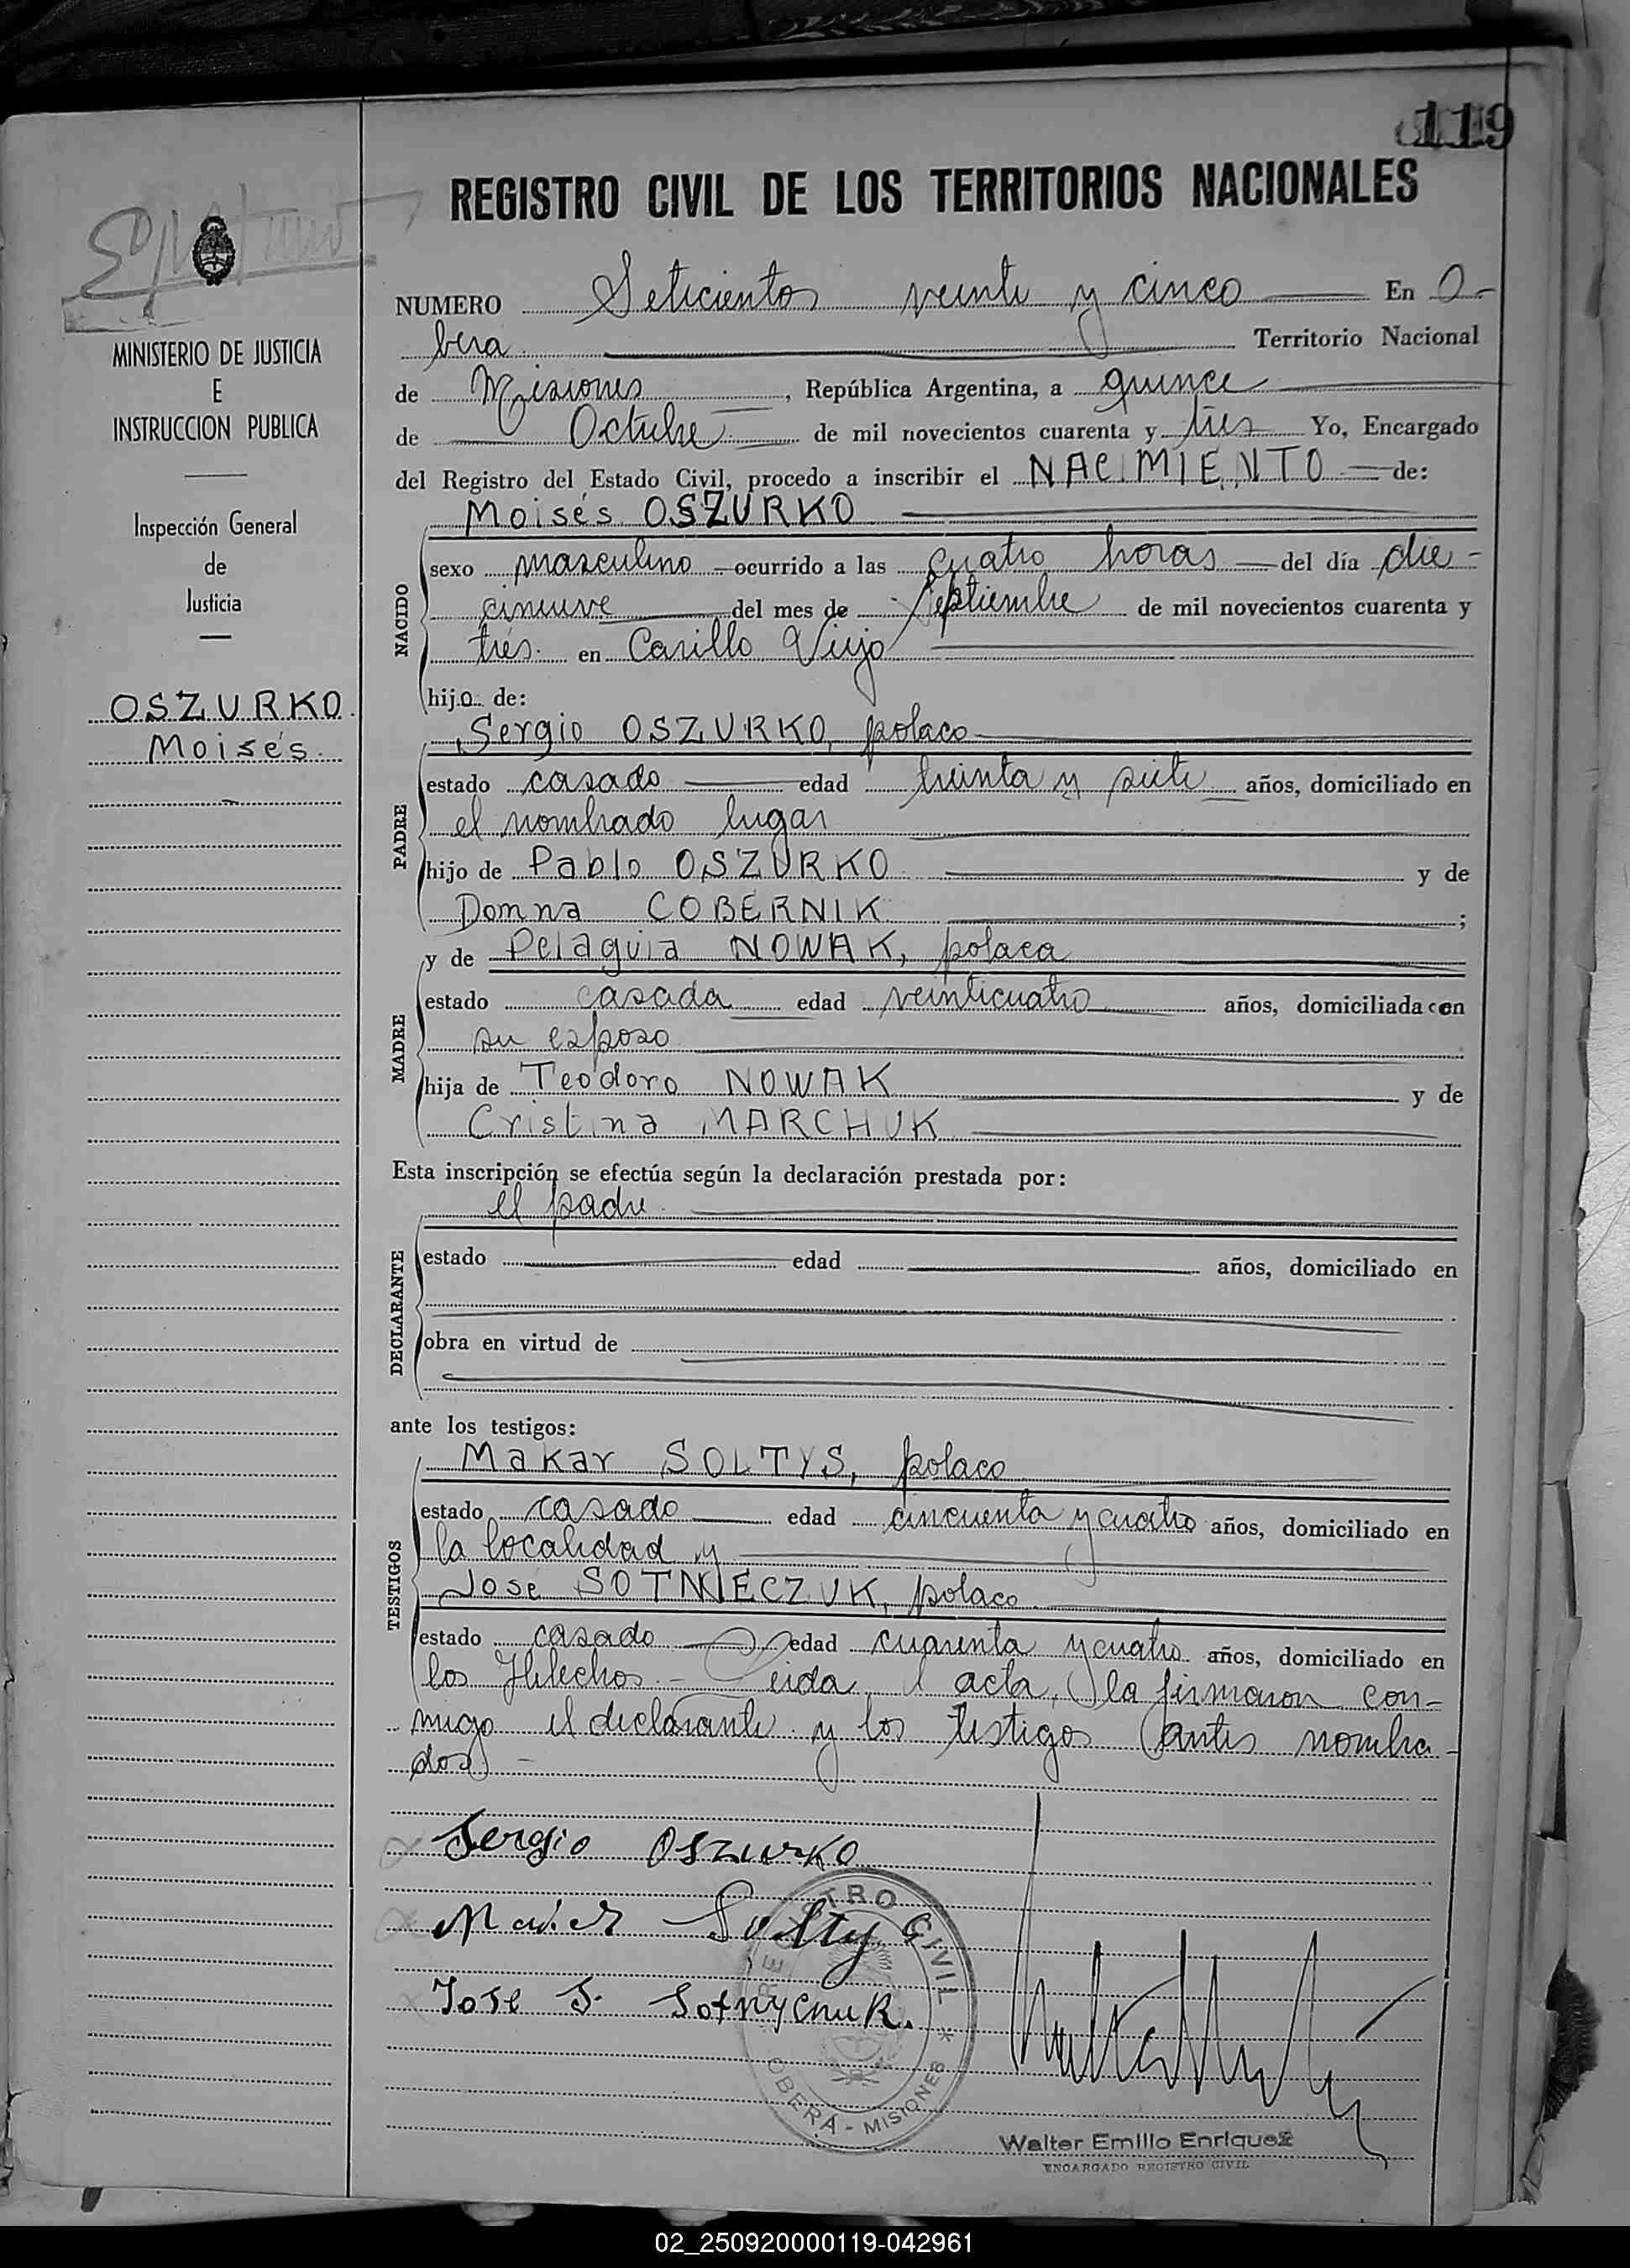 119
REGISTRO CIVIL DE LOS TERRITORIOS NACIONALES
MINISTERIO DE JUSTICIA
E
INSTRUCCION PUBLICA
Inspección General
de
Justicia
OSZURKO
Moisés.
NUMERO Seticientos veinte y cinco En O-
bera Territorio Nacional
de Misiones, República Argentina, a quince
de Octubre de mil novecientos cuarenta y tres Yo, Encargado
del Registro del Estado Civil, procedo a inscribir el NACIMIENTO de:
Moisés OSZURKO
NACIDO
sexo masculino ocurrido a las cuatro horas del día die-
cinueve del mes de Septiembre de mil novecientos cuarenta y
tres. en Carillo Viejo
hijo de:
Sergio OSZURKO, polaco
PADRE
estado casado edad treinta y siete años, domiciliado en
el nombrado lugar
hijo de Pablo OSZURKO y de
Domna COBERNIK ;
y de Pelaguia NOWAK, polaca
MADRE
estado casada edad veinticuatro años, domiciliada con
su esposo
hija de Teodoro NOWAK y de
Cristina MARCHUK
Esta inscripción se efectúa según la declaración prestada por:
el padre
DECLARANTE
estado edad años, domiciliado en
obra en virtud de
ante los testigos:
Makar SOLTYS, polaco
TESTIGOS
estado casado edad cincuenta y cuatro años, domiciliado en
la localidad y
José SOTNIECZUK, polaco
estado casado edad cuarenta y cuatro años, domiciliado en
los Helechos.- Leida el acta, la firmaron con-
migo el declarante y los testigos antes nombra-
dos -
Sergio OSZURKO
Soltys
Jose S. Sotnychuk.
REGISTRO CIVIL
* OBERÁ - MISIONES *
Walter Emilio Enriquez
ENCARGADO REGISTRO CIVIL
02_250920000119-042961